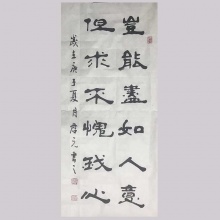 豈能盡如人意
但求不愧我心
歲在庚子夏月